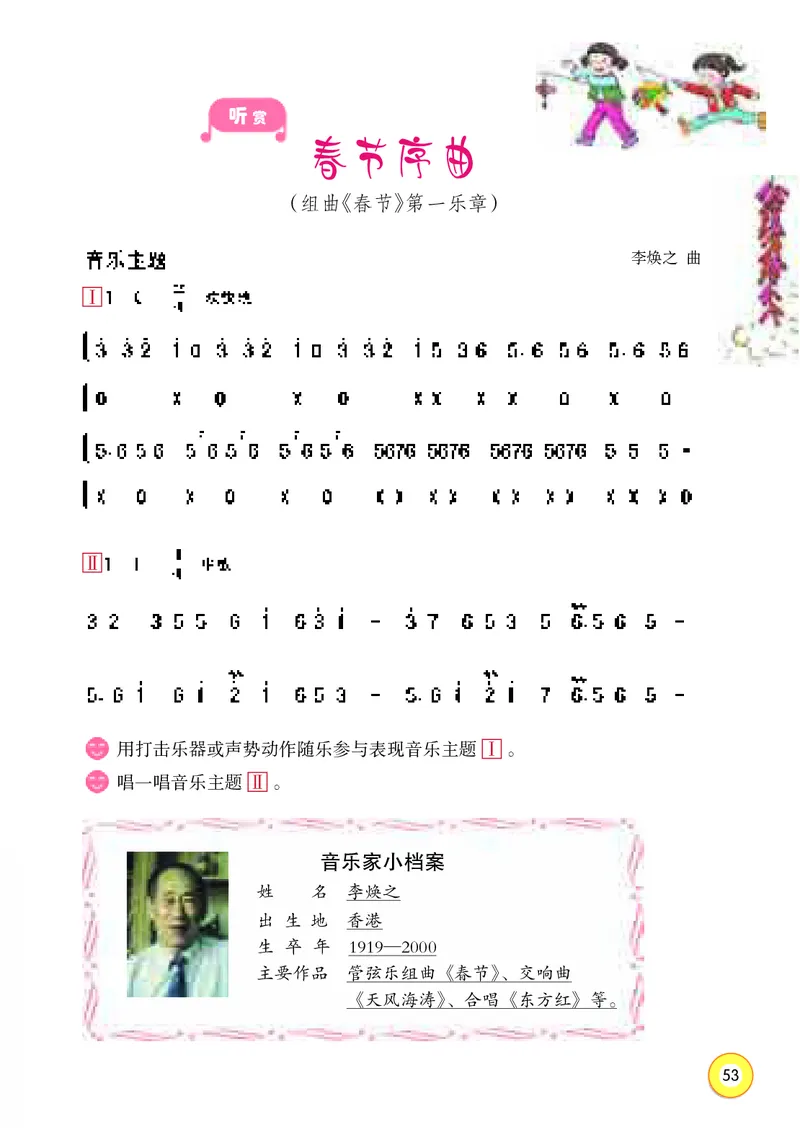 听赏
春节序曲
（组曲《春节》第一乐章）
音乐主题
李焕之 曲
Ⅰ
3 3 2 1 0 3 3 2 1 0 3 3 2 1 5 3 6 5. 6 5 6 5. 6 5 6
0 X 0 X 0 X X X X 0 X 0
5. 6 5 6 5 6 5 6 5 6 5 6 5676 5676 5676 5676 5 5 5 -
X 0 X 0 X 0 X X X X X X X X X X X 0
Ⅱ
3 2 3 5 5 6 1 6 3 1 - 3 7 6 5 3 5 6. 5 6 5 -
5. 6 1 6 1 2 1 6 5 3 - 5. 6 1 2 1 7 6. 5 6 5 -
用打击乐器或声势动作随乐参与表现音乐主题 Ⅰ 。
唱一唱音乐主题 Ⅱ 。
音乐家小档案
姓 名 李焕之
出 生 地 香港
生 卒 年 1919—2000
主要作品 管弦乐组曲《春节》、交响曲
《天风海涛》、合唱《东方红》等。
53